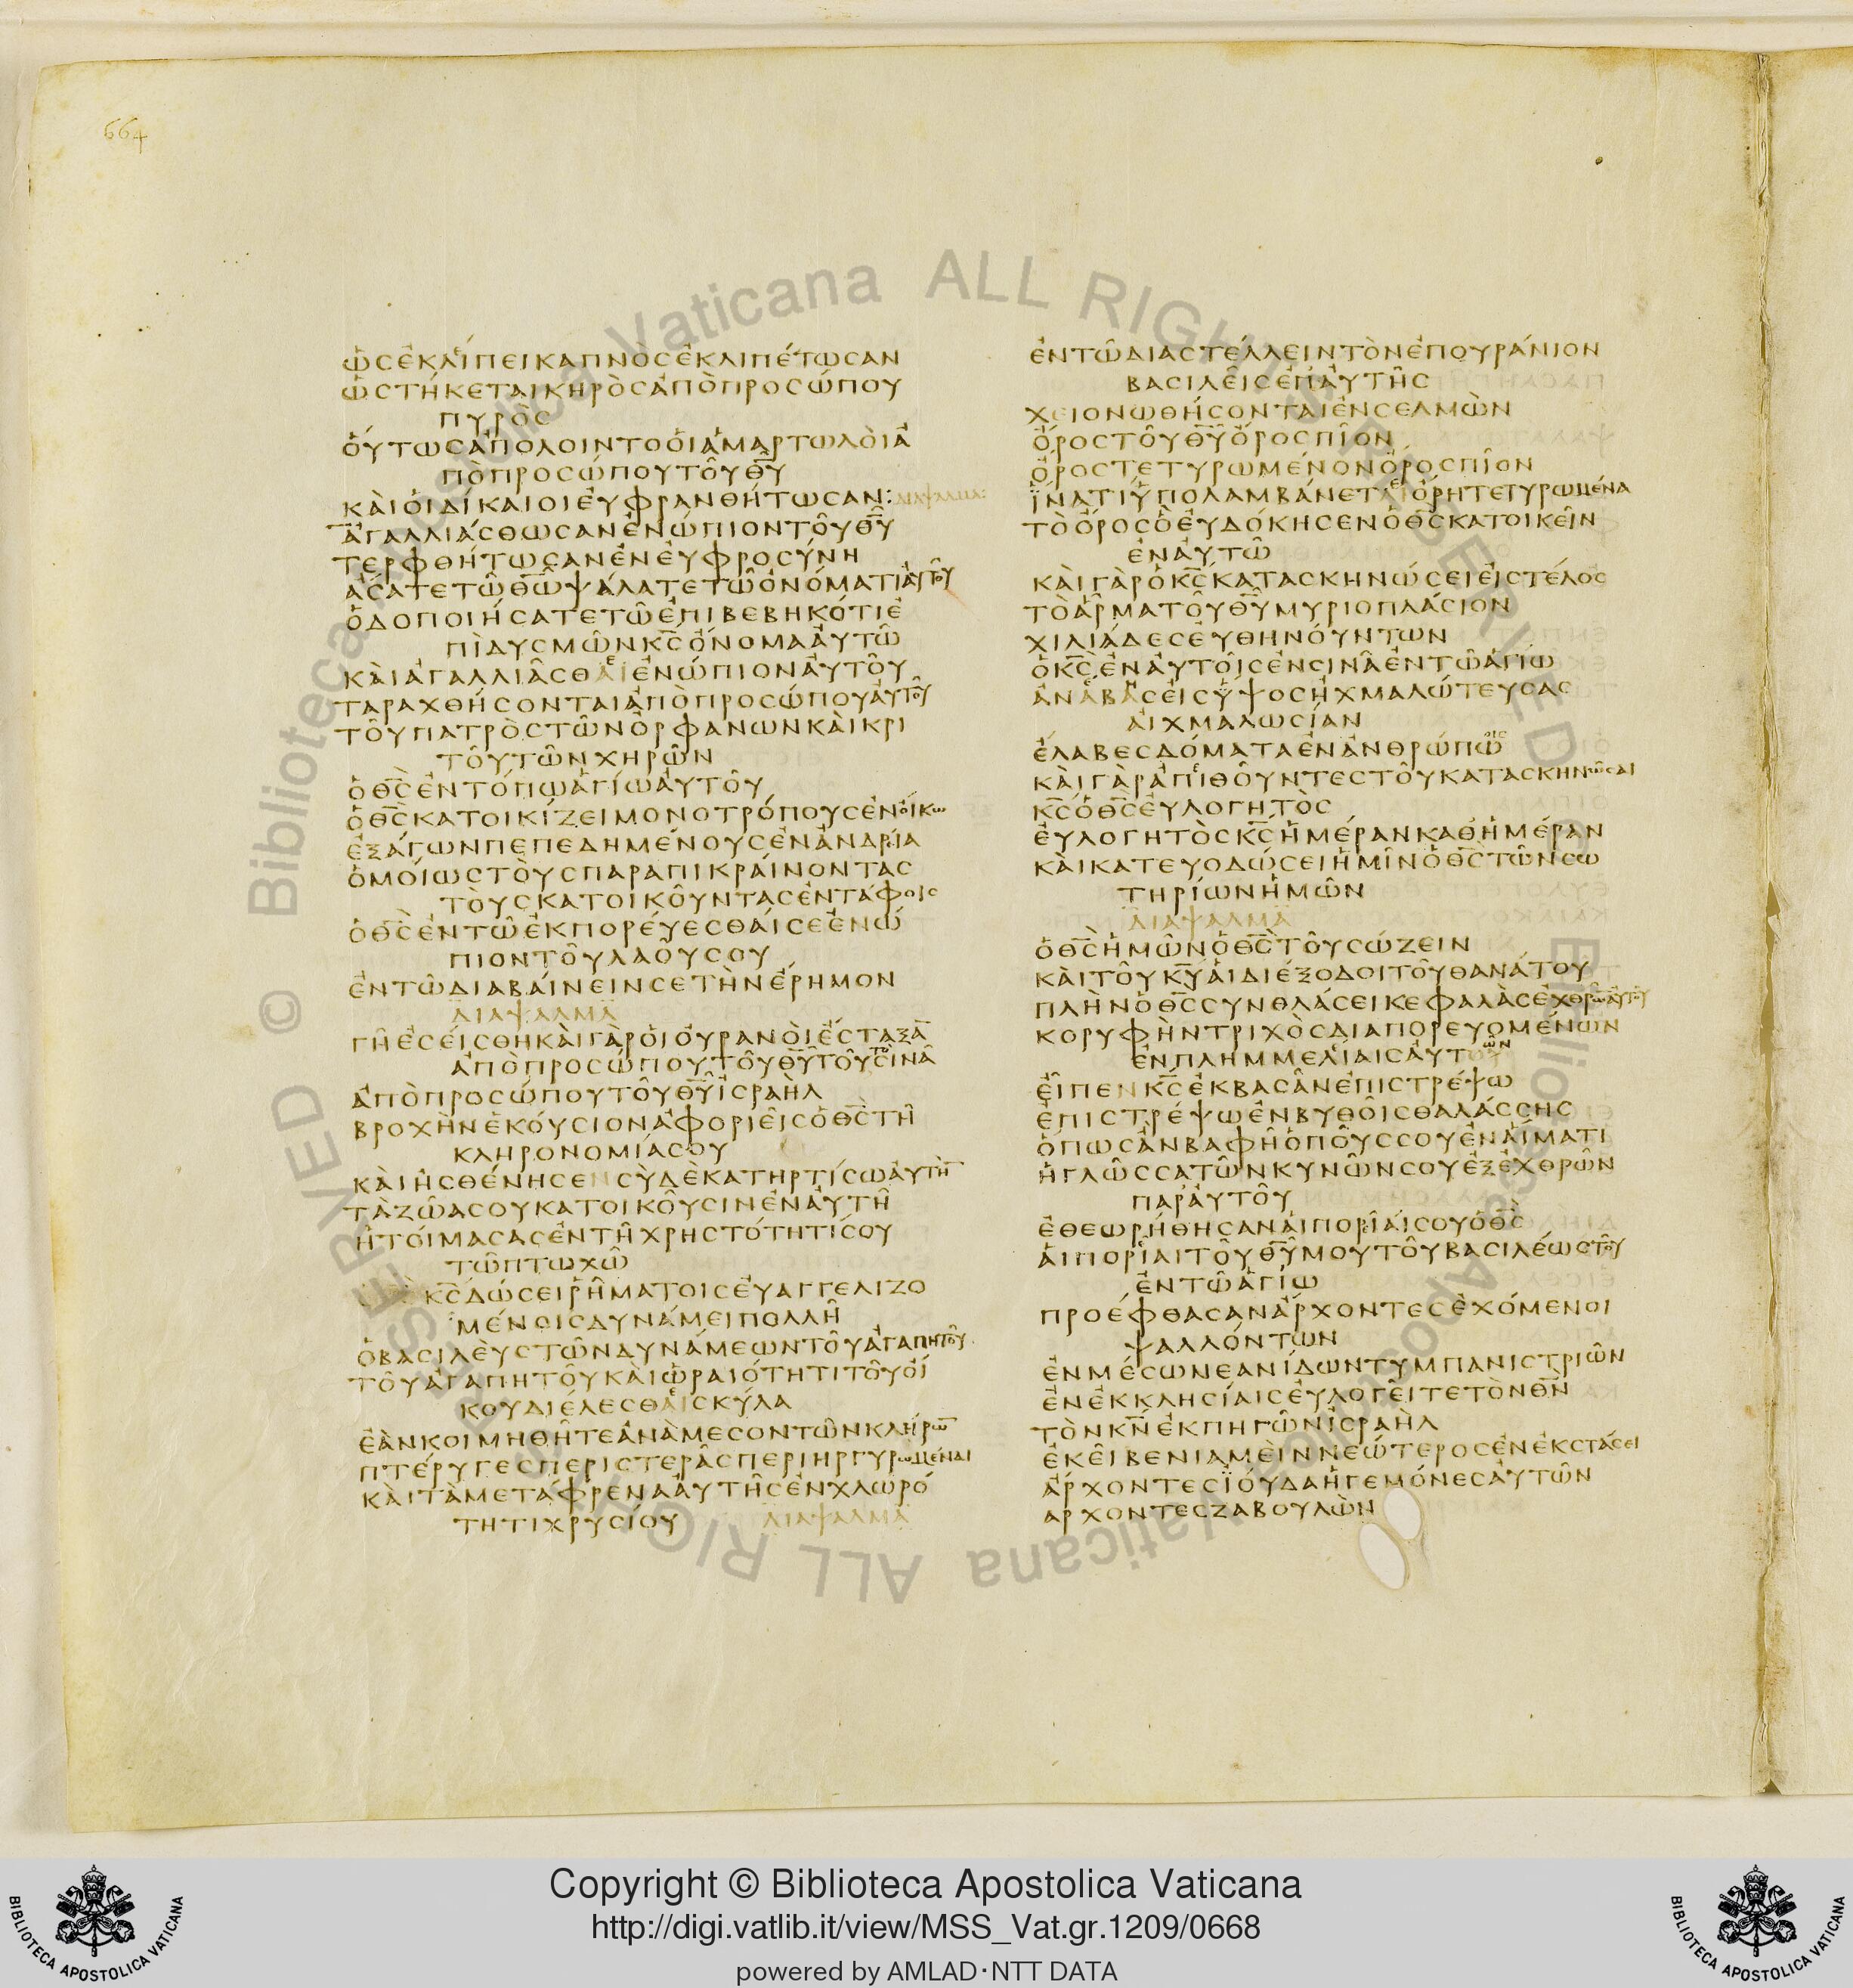 664
ὡσἐκλείπεικαπνὸσἐκλιπέτωσαν
ὡστήκεταικηρὸσἀπὸπροσώπου
πυρὸσ
ὁύτωσἀπολοιντοὁιἁμαρτωλὸιἀ
πὸπροσώπουτοῦθ̅υ̅
κὰιὁιδίκαιοιἐυφρανθήτωσαν:
ἀγαλλιάσθωσανἐνώπιοντοῦθ̅υ̅
τερφθήτωσανἐνἐυφροσύνη
ἄσατετῶθ̅ω̅ψάλατετῶὀνόματιἀυτοῦ
ὁδοποιήσατετῶἐπιβεβηκότιἐ
πὶδυσμῶνκ̅σ̅ὄνομαἀυτῶ
κὰιἀγαλλιᾶσθαιἐνώπιονἀυτοῦ
ταραχθήσονταιἀπὸπροσώπουἀυτοῦ
τοῦπατρὸστῶνὀρφανωνκὰικρι
τοῦτῶνχηρῶν
ὁθ̅σ̅ἐντόπωἁγίωἀυτοῦ
ὁθ̅σ̅κατοικίζειμονοτρόπουσἐνὄικω
ἐξάγωνπεπεδημένουσἐνἀνδρία
ὁμόιωστὸυσπαραπικράινοντασ
τὸυσκατοικοῦντασἐντάφοισ
ὁθ̅σ̅ἐντῶἐκπορέυεσθάισεἐνώ
πιοντοῦλαοῦσου
ἐντῶδιαβάινεινσετὴνἔρημον
διαψαλμα
γῆἐσέισθηκὰιγὰρὁιὀυρανὸιἔσταξα̅
ἀπὸπροσώπουτοῦθ̅υ̅τοῦσινᾶ
ἀπὸπροσώπουτοῦθ̅υ̅ἰσραὴλ
βροχὴνἑκόυσιονἀφοριεῖσὁθ̅σ̅τῆ
κληρονομίασου
κὰιἠσθένησενσὺδὲκατηρτίσωἀυτὴ̅
τὰζῶασουκατοικοῦσινἐνἀυτῆ
ἡτόιμασασἐντῆχρηστότητίσου
τῶπτωχῶ
κ̅σ̅δώσειρῆματοισἐυαγγελιζο
μένοισδυνάμειπολλῆ
ὁβασιλὲυστῶνδυνάμεωντοῦἀγαπητοῦ
τοῦἀγαπητοῦκὰιὡραιότητιτοῦὄι
κουδιέλεσθαισκύλα
ἐὰνκοιμηθῆτεἀνὰμεσοντῶνκλήρω̅
πτέρυγεσπεριστερᾶσπεριηργυρωμέναι
κὰιτὰμετάφρεναἀυτῆσἐνχλωρό
τητιχρυσίου διαψαλμα
ἐντῶδιαστέλλειντὸνἐπουράνιον
βασιλεῖσἐπἀυτῆσ
χειονωθήσονταιἐνσελμὼν
ὄροστοῦθ̅υ̅ὄροσπῖον
ὄροστετυρωμένονὄροσπῖον
ἵνατιὑπολαμβάνεταιὄρητετυρωμένα
τὸὄροσὃἐυδόκησενὁθ̅σ̅κατοικεῖν
ἐνἀυτῶ
κὰιγὰρὁκ̅σ̅κατασκηνώσειἐιστέλοσ
τὸἅρματοῦθ̅υ̅μυριοπλάσιον
χιλιάδεσἐυθηνόυντων
ὁκ̅σ̅ἐνἀυτοῖσἐνσινᾶἐντῶἁγίω
ἀνάβασἐισὕψοσἠχμαλώτευσασ
ἀιχμαλωσίαν
ἔλαβεσδόματαἐνἀνθρώποισ
κὰιγὰρἀπιθοῦντεστοῦκατασκηνῶσαι
κ̅σ̅ὁθ̅σ̅ἐυλογητὸσ
ἐυλογητὸσκ̅σ̅ἡμέρανκαθἡμέραν
κὰικατευοδώσειἡμῖνὁθ̅σ̅τῶνσω
τηρίωνἡμῶν
διαψαλμα
ὁθ̅σ̅ἡμῶνὁθ̅σ̅τοῦσώζειν
κὰιτοῦκ̅υ̅ἁιδιέξοδοιτοῦθανάτου
πλὴνὁθ̅σ̅συνθλάσεικεφαλὰσἐχθρῶ̅ἀυτοῦ
κορυφὴντριχὸσδιαπορευομένων
ἐνπλημμελίαισἀυτῶν
εἶπενκ̅σ̅ἐκβασᾶνἐπιστρέψω
ἐπιστρέψωἐνβυθοῖσθαλάσσησ
ὅπωσἂνβαφῆὁποῦσσουἐνἅιματι
ἡγλῶσσατῶνκυνῶνσουἐξἐχθρῶν
παρἀυτοῦ
ἐθεωρήθησανἁιπορῖάισουὁθ̅σ̅
ἁιπορίαιτοῦθ̅υ̅μουτοῦβασιλέωστοῦ
ἐντῶἁγίω
προέφθασανἄρχοντεσἐχόμενοι
ψαλλόντων
ἐνμέσωνεανίδωντυμπανιστριῶν
ἐνἐκκλησίαισἐυλογεῖτετὸνθ̅ν̅
τὸνκ̅ν̅ἐκπηγῶνἰσραὴλ
ἐκεῖβενιαμὲιννεώτεροσἐνἐκστάσει
ἄρχοντεσἰόυδαἡγεμόνεσἀυτῶν
αρχοντεσζαβουλὼν
© Biblioteca Apostolica Vaticana ALL RIGHTS RESERVED
© Biblioteca Apostolica Vaticana ALL RIGHTS RESERVED
Copyright © Biblioteca Apostolica Vaticana
http://digi.vatlib.it/view/MSS_Vat.gr.1209/0668
powered by AMLAD·NTT DATA
BIBLIOTECA APOSTOLICA VATICANA
BIBLIOTECA APOSTOLICA VATICANA